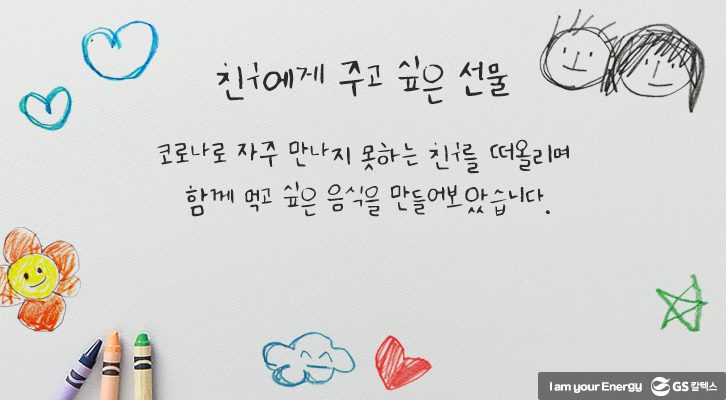 친구에게 주고 싶은 선물
코로나로 자주 만나지 못하는 친구를 떠올리며
함께 먹고 싶은 음식을 만들어보았습니다.
I am your Energy GS칼텍스